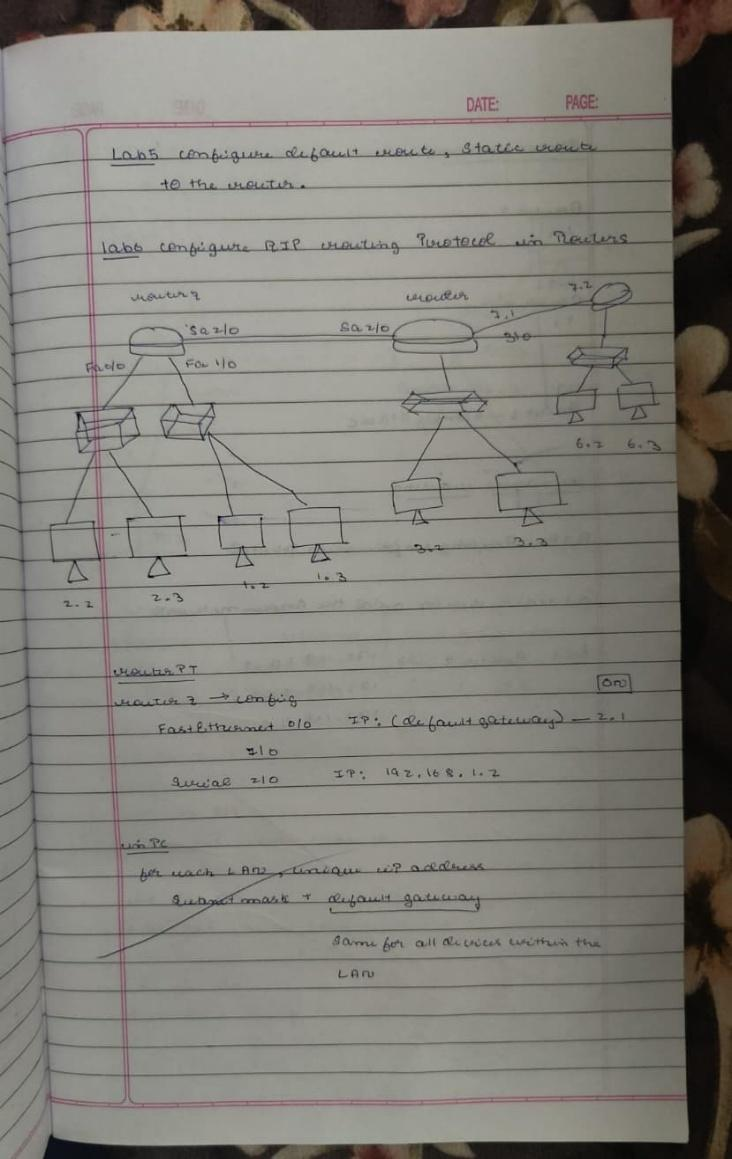 DATE: PAGE:
Lab5 configure default route, static route
to the router.
lab6 configure RIP routing Protocol in Routers
router
7.2
Se 2/0
Se 2/0
7.1
3/0
Fa 0/0
Fa 1/0
6.2 6.3
3.2 3.3
2.2 2.3 1.2 1.3
router PT
router 2 → config
ON
FastEthernet 0/0 IP: (default gateway) — 2.1
1/0
Serial 2/0 IP: 192.168.1.2
in PC
for each LAN, unique IP address
Subnet mask + default gateway
Same for all devices within the
LAN